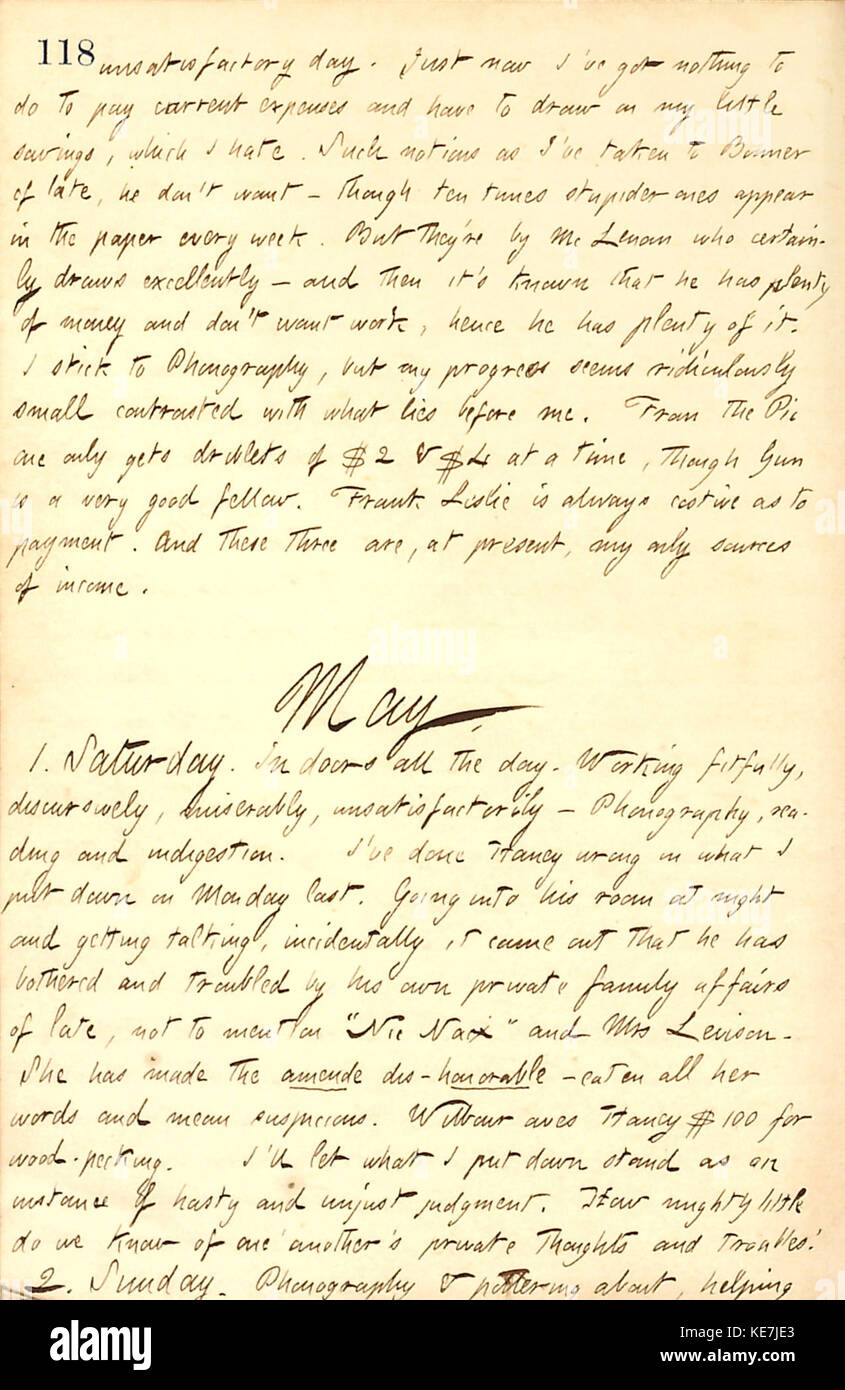 118 unsatisfactory day. Just now I've got nothing to
do to pay current expenses and have to draw on my little
savings, which I hate. Such notions as I've taken to Bonner
of late, he don't want — though ten times stupider ones appear
in the paper every week. But they're by Mc Lenan who certain-
ly draws excellently — and then it's known that he has plenty
of money and don't want work, hence he has plenty of it.
I stick to Phonography, but my progress seems ridiculously
small contrasted with what lies before me. From the Pic
one only gets driblets of $2 & $4 at a time, though Gun
is a very good fellow. Frank Leslie is always costive as to
payment. And these three are, at present, my only sources
of income.
May.
1. Saturday. In doors all the day. Working fitfully,
discursively, miserably, unsatisfactorily — Phonography, rea-
ding and indigestion. I've done Haney wrong in what I
put down on Monday last. Going into his room at night
and getting talking, incidentally it came out that he has
bothered and troubled by his own private family affairs
of late, not to mention "Nic Nax" and Mrs Levison.
She has made the amende dis-honorable — eaten all her
words and mean suspicions. Wilbour owes Haney $100 for
wood-pecking. I'll let what I put down stand as an
instance of hasty and unjust judgment. How mighty little
do we know of one another's private thoughts and troubles!
2. Sunday. Phonography & pottering about, helping
alamy
Image ID: KE7JE3
www.alamy.com